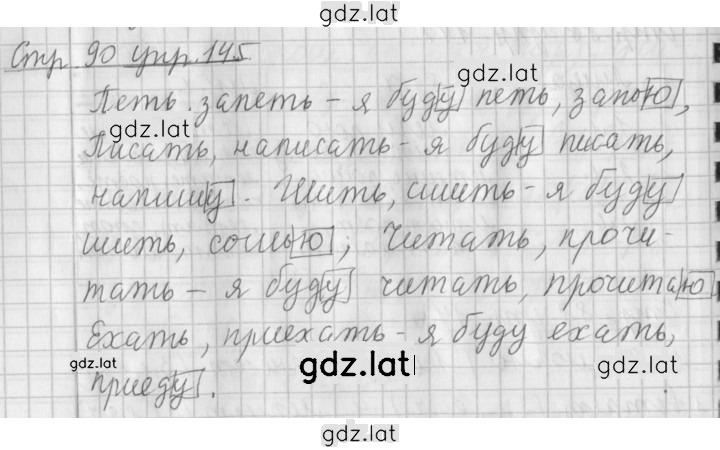 gdz.lat
Стр. 90 упр. 145
gdz.lat
Петь. запеть - я буду петь, запою,
gdz.lat
Писать, написать - я буду писать,
напишу. Шить, сшить - я буду
шить, сошью; Читать, прочи-
тать - я буду читать, прочитаю
Ехать, приехать - я буду ехать,
gdz.lat gdz.lat gdz.lat
приеду.
gdz.lat